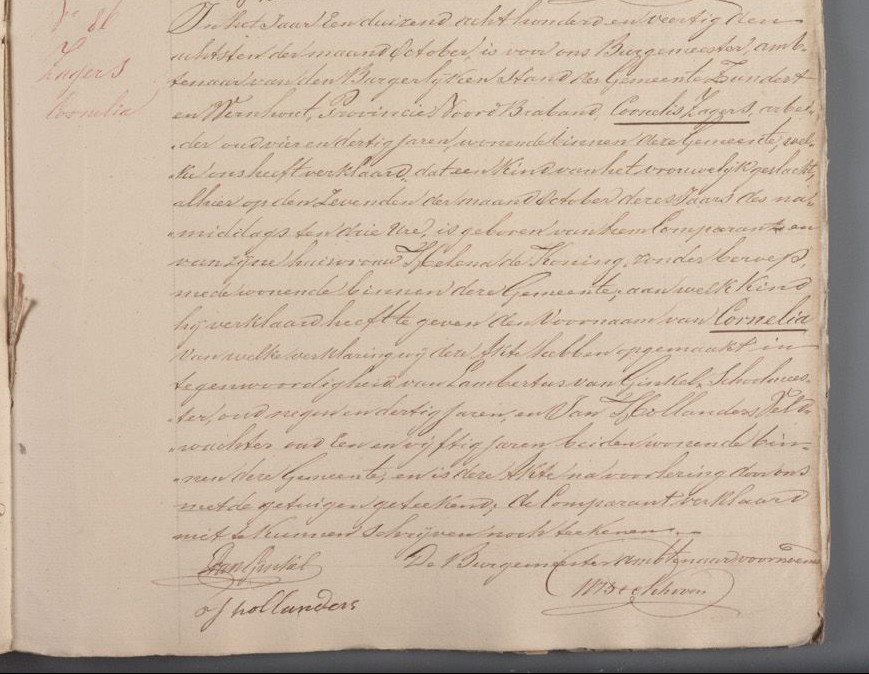 No 86
Zagers
Cornelia
In het Jaar Een duizend acht honderd en veertig den
achtsten der maand October, is voor ons Burgemeester, amb-
tenaar van den Burgerlijken Stand der Gemeente Zundert
en Wernhout, Provincie Noord Braband, Cornelis Zagers, arbei-
der oud vier en dertig jaren, wonende binnen deze Gemeente, wel-
ke ons heeft verklaard, dat een Kind van het vrouwelijk geslacht,
alhier op den Zevenden der maand October dezes Jaars des na-
middags ten drie Ure, is geboren van hem Comparant en
van zijne huisvrouw Helena de Koning, zonder beroep,
mede wonende binnen deze Gemeente, aan welk Kind
hij verklaard heeft te geven den Voornaam van Cornelia
Van welke verklaring wij deze Akte hebben opgemaakt in
tegenwoordigheid van Lambertus van Ginkel, Schoolmees-
ter, oud negen en dertig Jaren, en Jan Hollanders Veld-
wachter oud Een en vijftig Jaren beiden wonende bin-
nen deze Gemeente, en is deze Akte na voorlezing door ons
met de getuigen geteekend; de Comparant verklaard
niet te kunnen schrijven noch teekenen.
van Ginkel De Burgemeester ambtenaar voornoemd
J hollanders